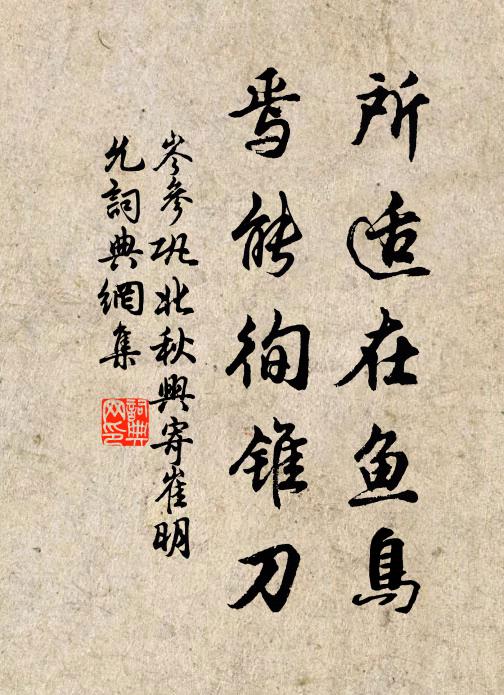 所适在鱼鳥
焉能徇锥刀
岑參巩北秋興寄崔明
允詞典網集
詞典
网印